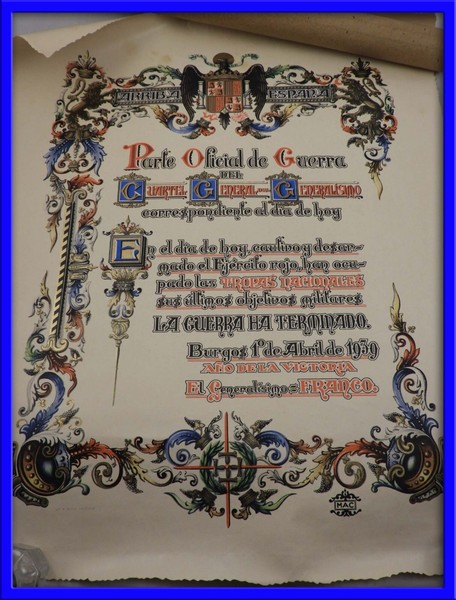 ARRIBA ESPAÑA
Parte Oficial de Guerra
DEL
CUARTEL GENERAL DEL GENERALISIMO
correspondiente al dia de hoy
En el dia de hoy, cautivo y desar-
mado el Ejército rojo, han ocu-
pado las TROPAS NACIONALES
sus últimos objetivos militares
LA GUERRA HA TERMINADO.
Burgos 1º de Abril de 1939
AÑO DE LA VICTORIA
El Generalísimo = FRANCO.
MAC